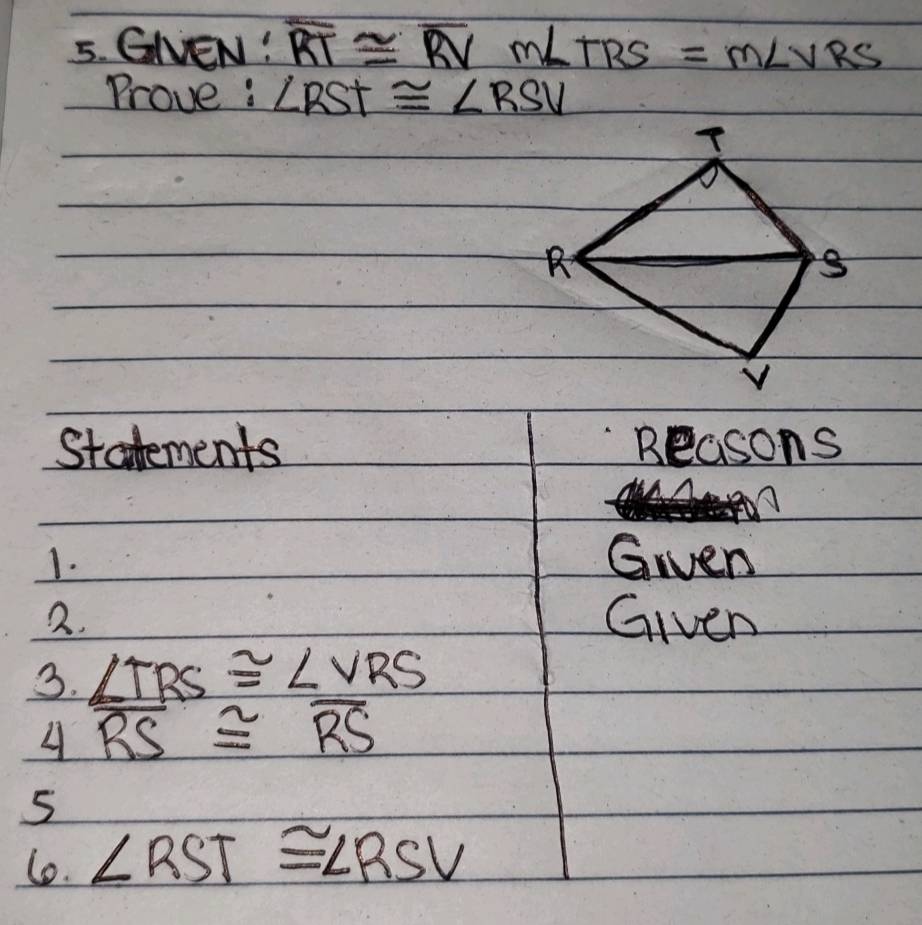 5. GIVEN: RT ≅ RV m∠TRS = m∠VRS
Prove: ∠RST ≅ ∠RSV
T
R
S
V
Statements Reasons
1. Given
2. Given
3. ∠TRS ≅ ∠VRS
4 RS ≅ RS
5
6. ∠RST ≅ ∠RSV